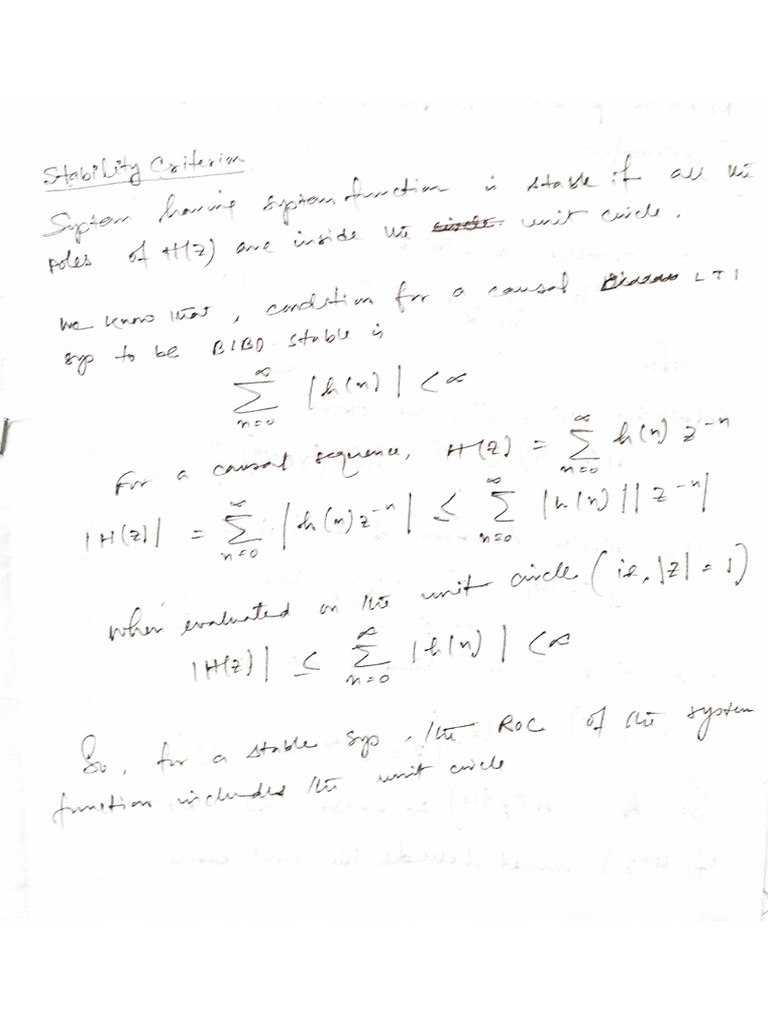 Stability Criterion
System having system function is stable if all the
poles of H(z) are inside the unit circle.
We know that, condition for a causal LTI
sys to be BIBO stable is
∞
∑ |h(n)| < ∞
n=0
For a causal sequence, H(z) = ∑_{n=0}^{∞} h(n) z^{-n}
|H(z)| = ∑_{n=0}^{∞} |h(n) z^{-n}| ≤ ∑_{n=0}^{∞} |h(n)| |z^{-n}|
When evaluated on the unit circle (ie, |z| = 1)
|H(z)| ≤ ∑_{n=0}^{∞} |h(n)| < ∞
So, for a stable sys, the ROC of the system
function includes the unit circle